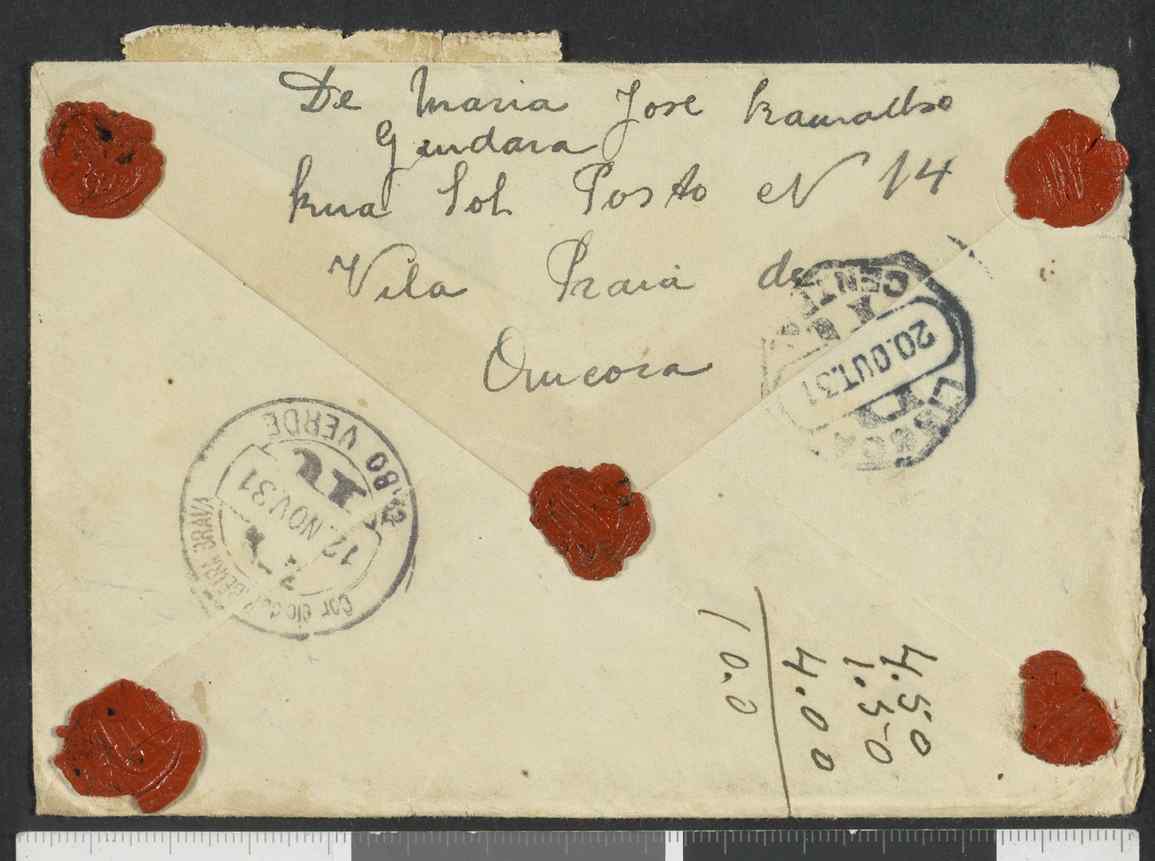 De Maria José Ramalho
Gandara
Rua Sol Posto N 14
Vila Praia de
Ancora
CENTRAL
20.OUT.31
LISBOA
CABO VERDE
12 NOV. 31
Correio da Ribeira Brava
4.50
1.50
4.00
10.0